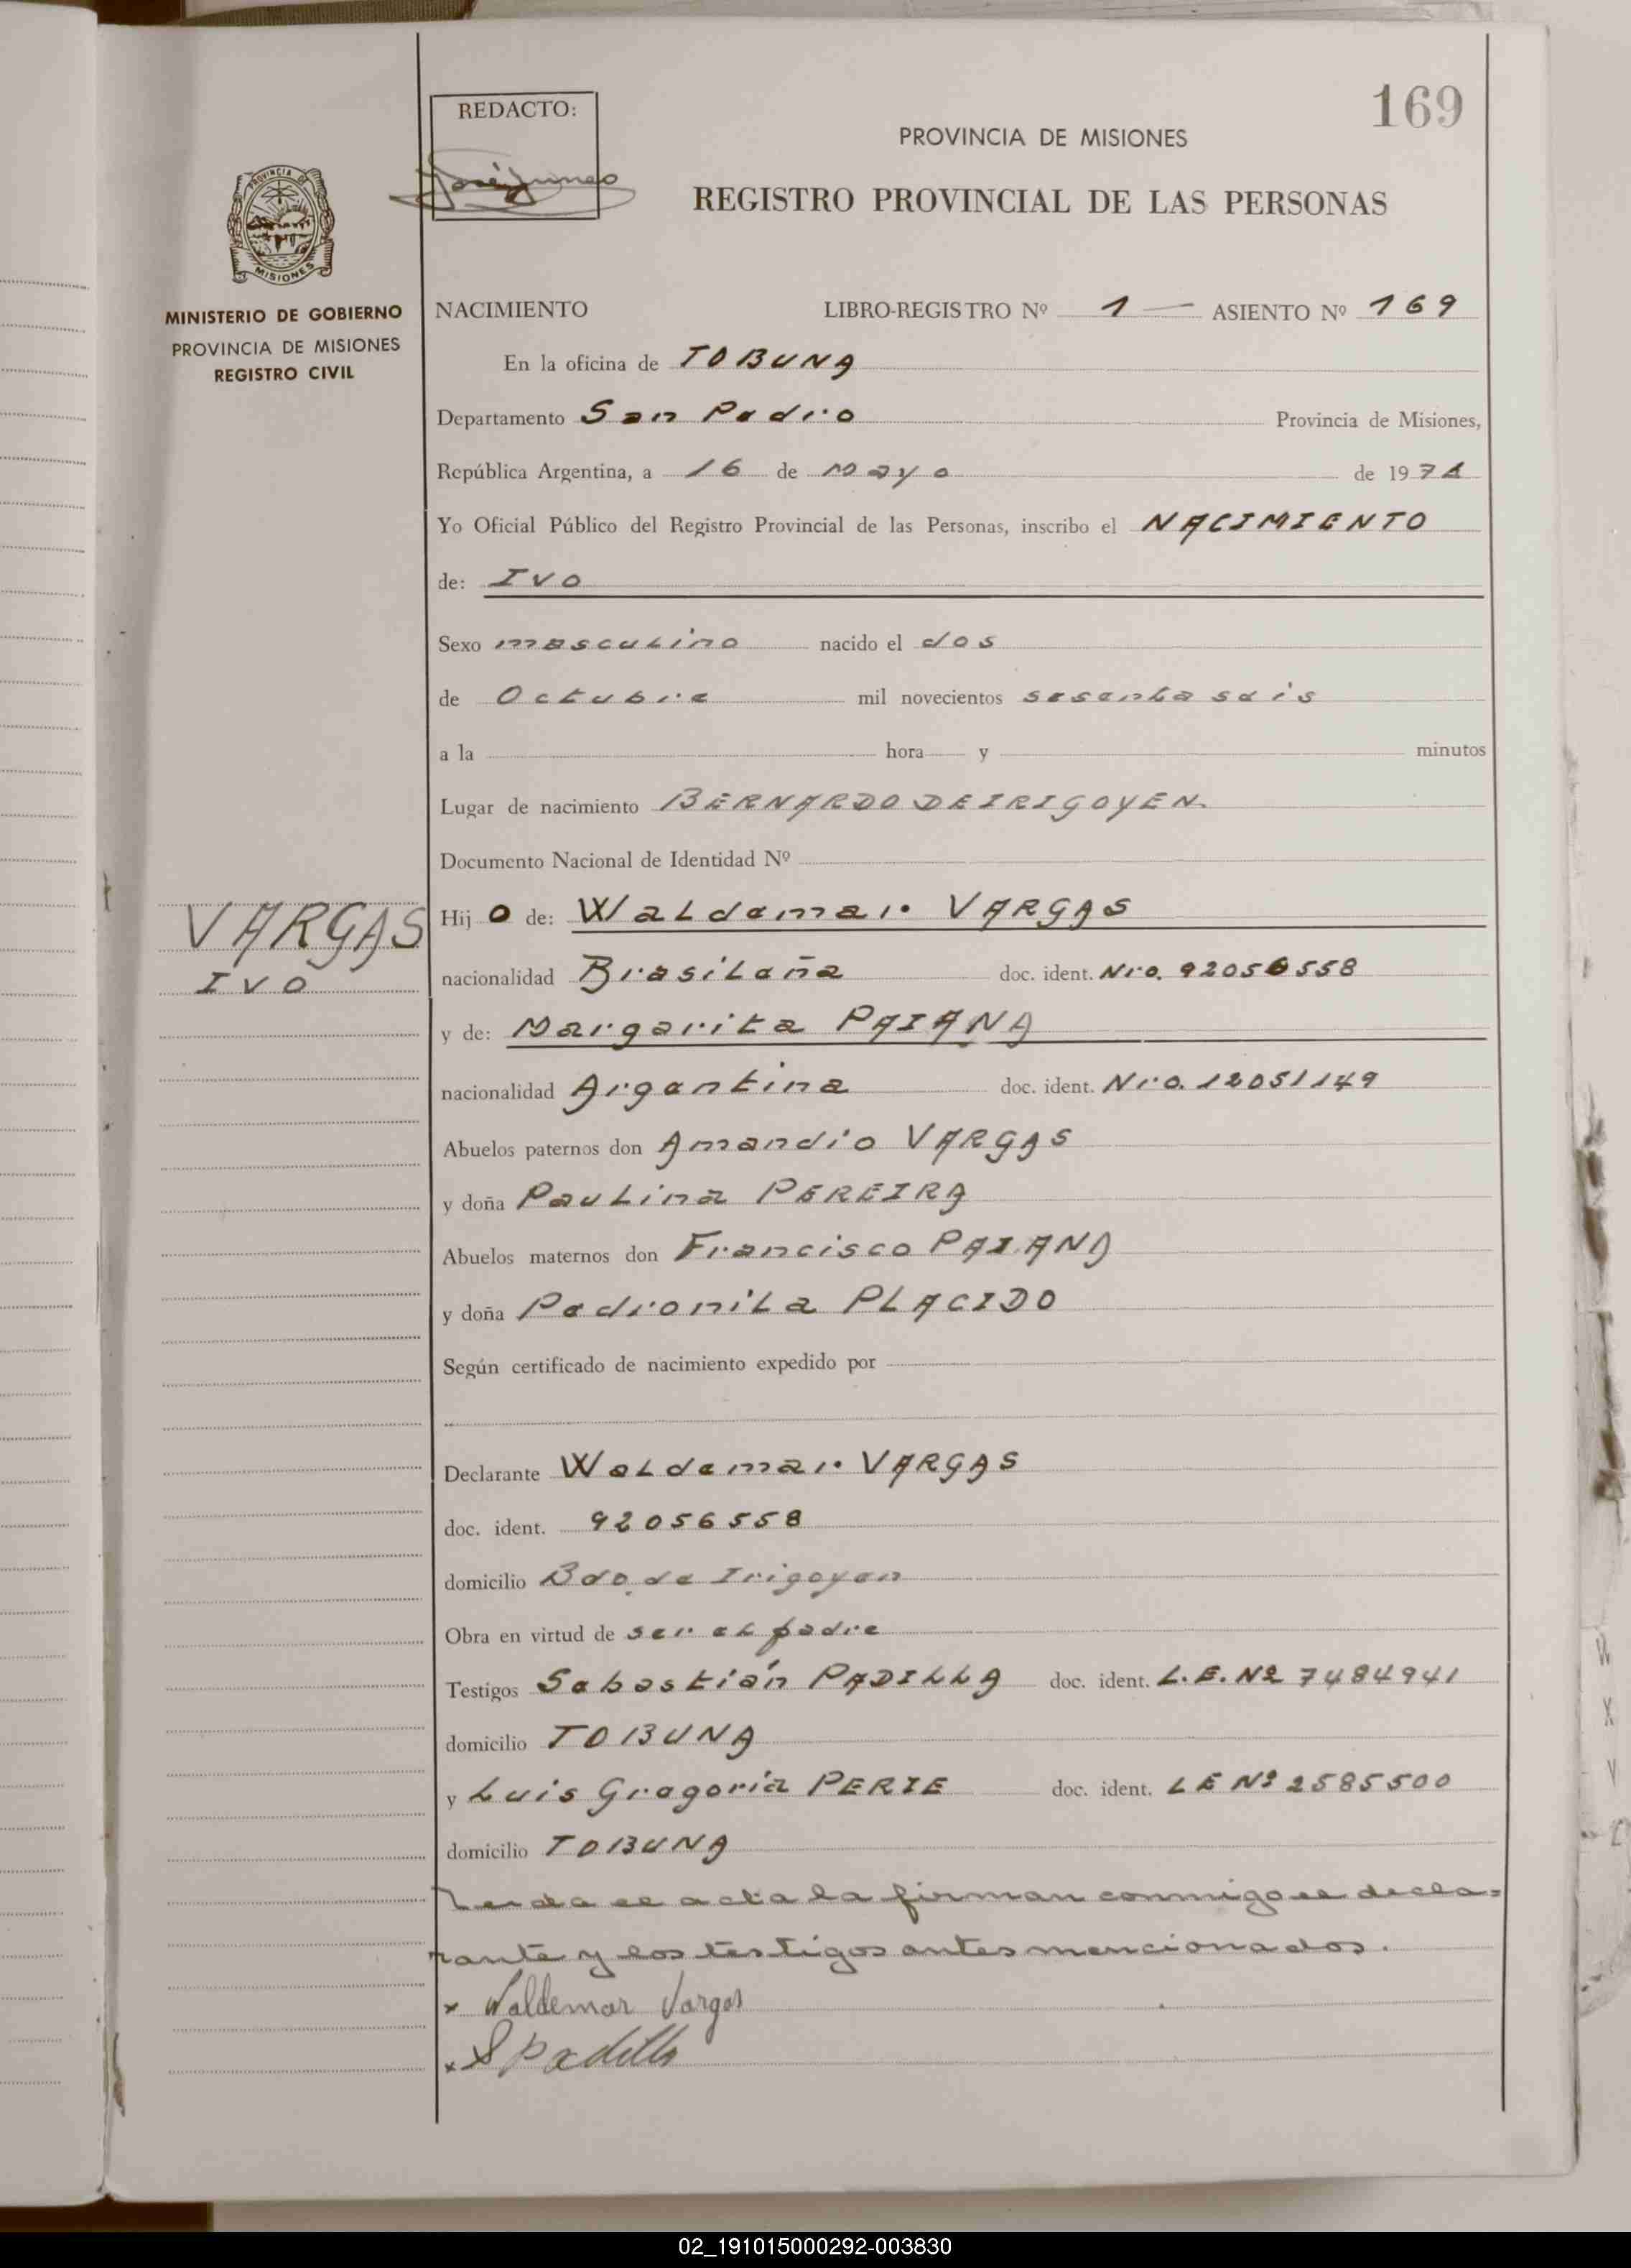 169
REDACTO:
PROVINCIA DE MISIONES
REGISTRO PROVINCIAL DE LAS PERSONAS
PROVINCIA DE
MISIONES
MINISTERIO DE GOBIERNO
PROVINCIA DE MISIONES
REGISTRO CIVIL
NACIMIENTO LIBRO-REGISTRO Nº 1 — ASIENTO Nº 169
En la oficina de TOBUNA
Departamento San Pedro Provincia de Misiones,
República Argentina, a 16 de Mayo de 1974
Yo Oficial Público del Registro Provincial de las Personas, inscribo el NACIMIENTO
de: IVO
Sexo masculino nacido el dos
de Octubre mil novecientos sesenta seis
a la hora y minutos
Lugar de nacimiento BERNARDO DE IRIGOYEN.
Documento Nacional de Identidad Nº
VARGAS
IVO
Hij o de: Waldemar VARGAS
nacionalidad Brasileña doc. ident. Nro. 92056558
y de: Margarita PAIANA
nacionalidad Argentina doc. ident. Nro. 12051149
Abuelos paternos don Amandio VARGAS
y doña Paulina PEREIRA
Abuelos maternos don Francisco PAIANA
y doña Pedronila PLACIDO
Según certificado de nacimiento expedido por
Declarante Waldemar VARGAS
doc. ident. 92056558
domicilio Bdo. de Irigoyen
Obra en virtud de ser el padre
Testigos Sebastián PADILLA doc. ident. L.E. Nº 7484941
domicilio TOBUNA
y Luis Gregoria PERIE doc. ident. LE Nº 2585500
domicilio TOBUNA
Leida el acta la firman conmigo el decla=
rante y los testigos antes mencionados.
x Waldemar Vargas
x S Padilla
02_191015000292-003830